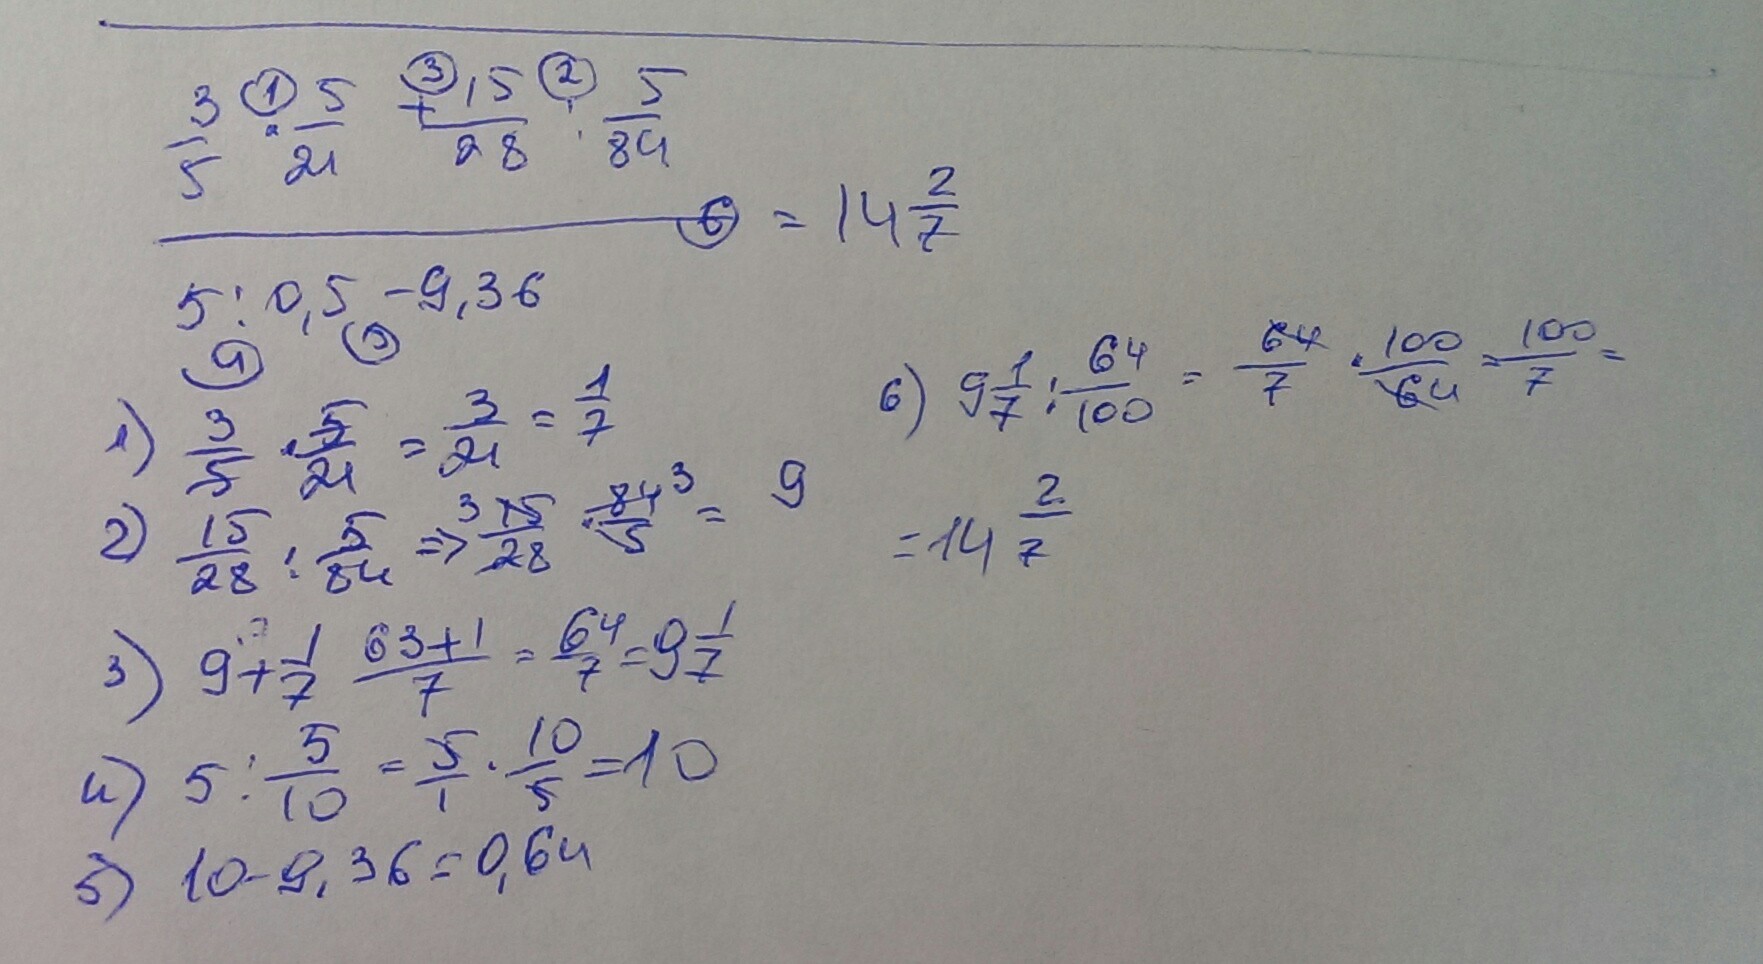 3/5 ① · 5/21 ③ + 15/28 ② : 5/84
⑥ = 14 2/7
5 : 0,5 - 9,36
④
1) 3/5 · 5/21 = 3/21 = 1/7
2) 15/28 : 5/84 => 3 15/28 · 84/5 3 = 9
3) 9 + 1/7 63+1/7 = 64/7 = 9 1/7
4) 5 : 5/10 = 5/1 · 10/5 = 10
5) 10 - 9,36 = 0,64
6) 9 1/7 : 64/100 = 64/7 · 100/64 = 100/7 =
= 14 2/7